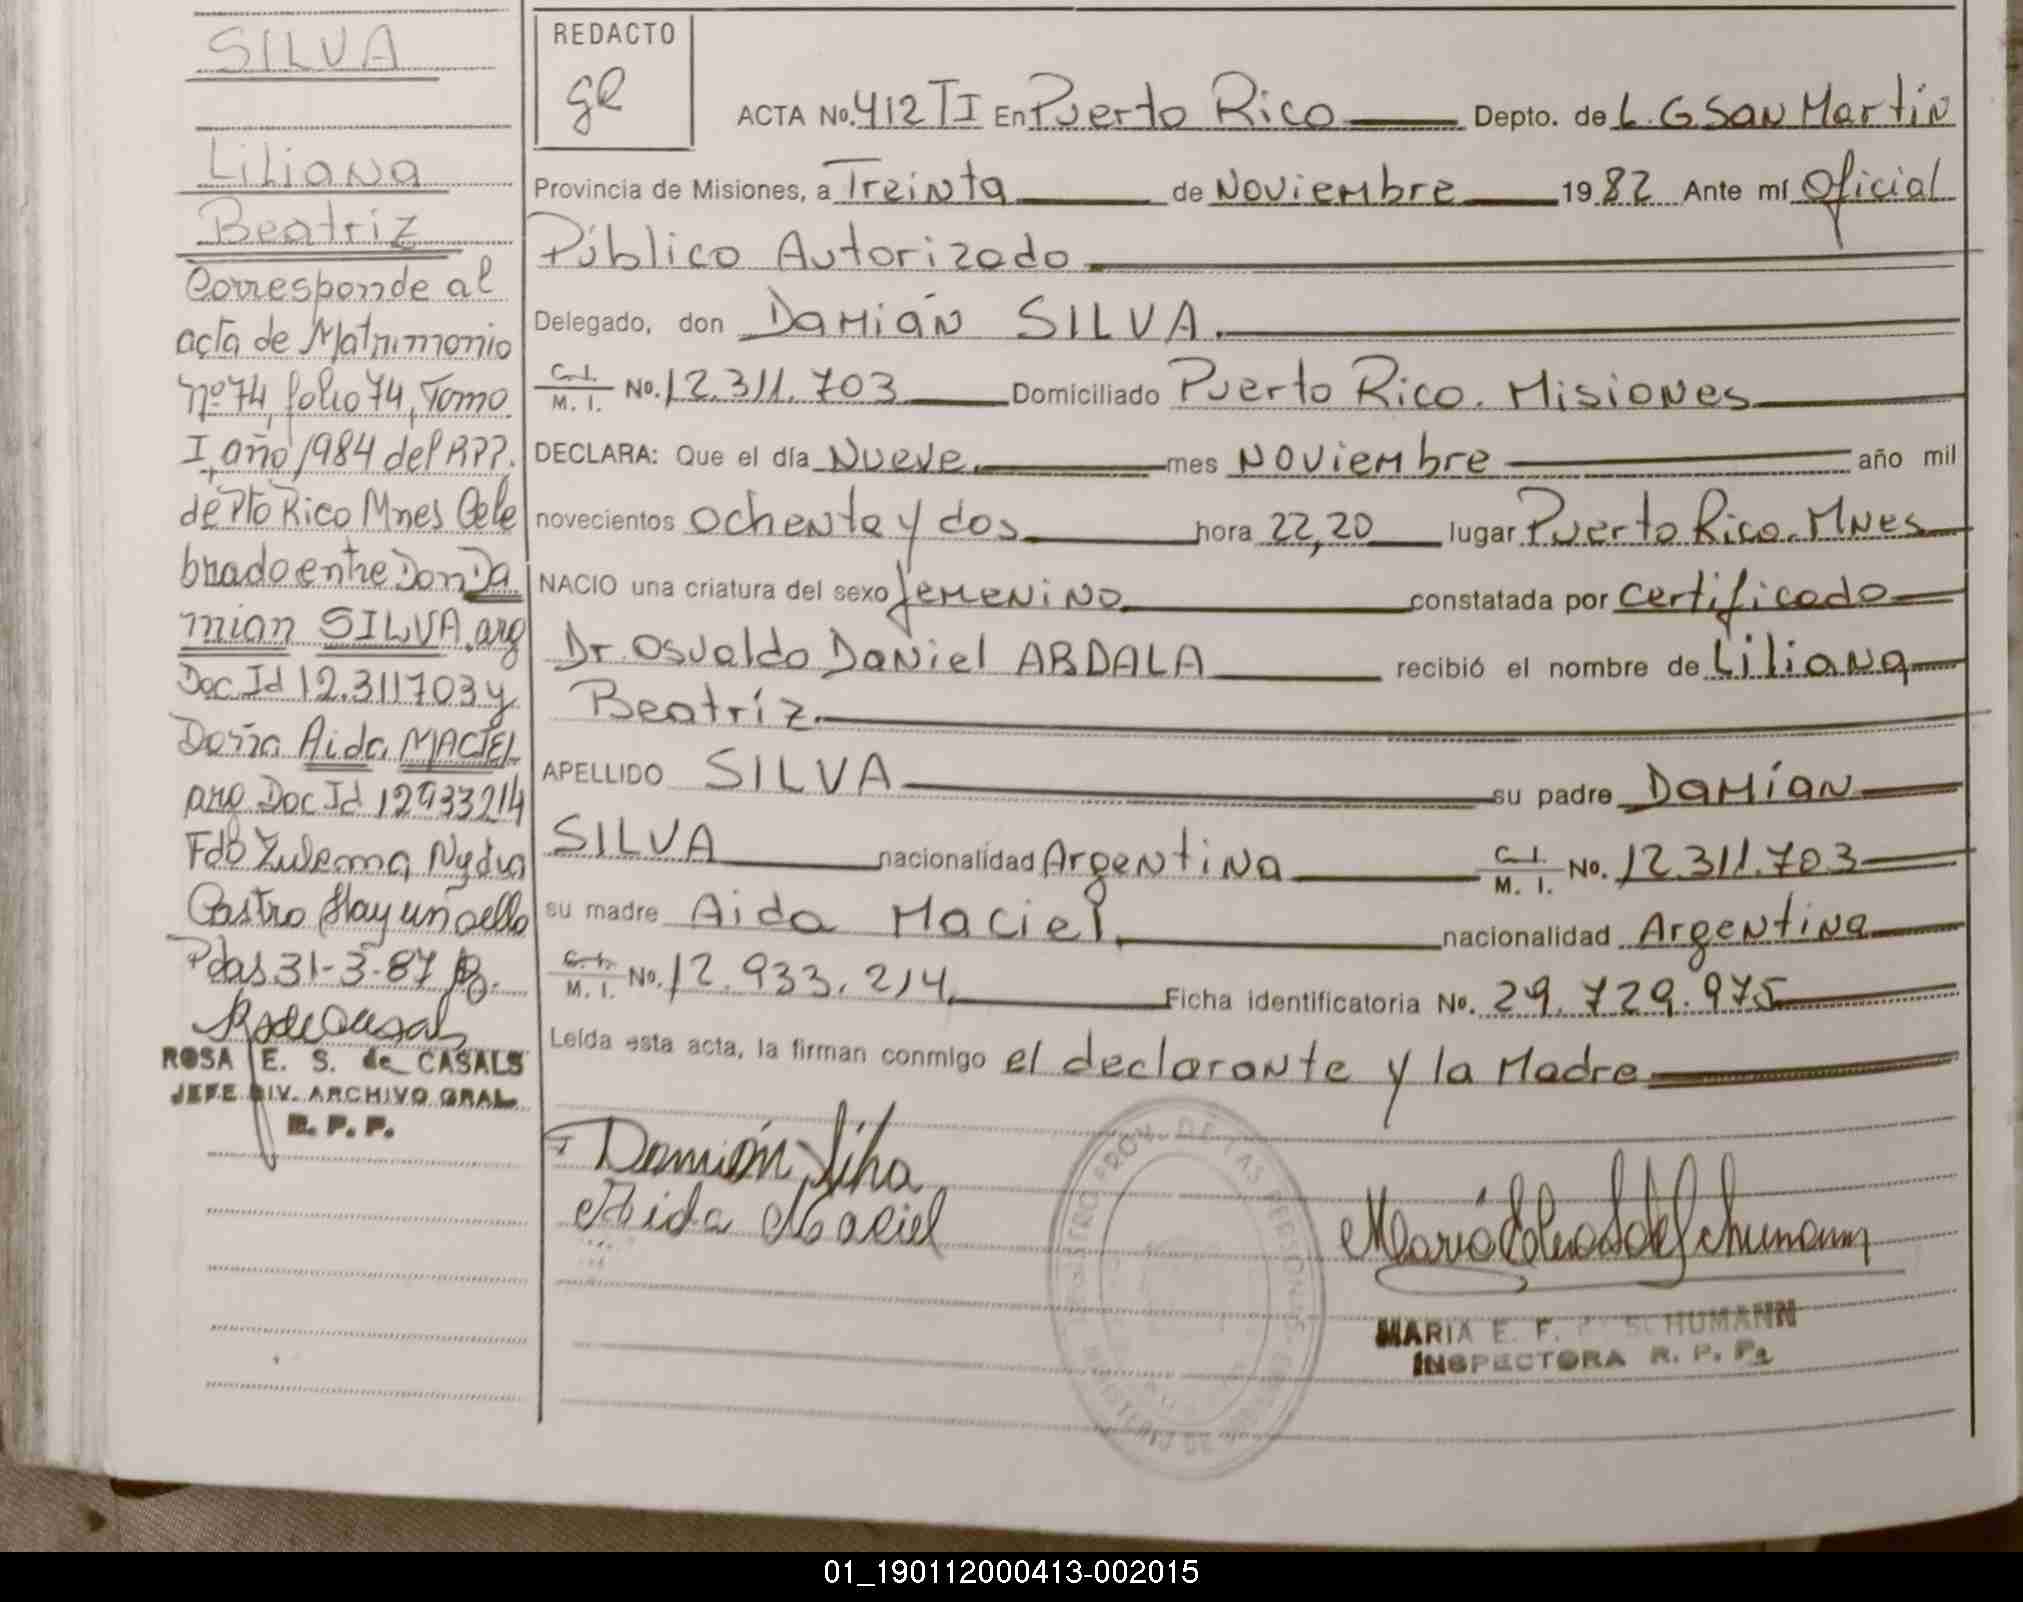 SILVA
Liliana
Beatriz
Corresponde al
acta de Matrimonio
nº 74, folio 74, Tomo
I, año 1984 del RPP.
de Pto Rico Mnes Cele
brado entre Don Da
mian SILVA. arg
Doc. Id 12.311703 y
Doña Aida MACIEL
arg Doc Id 12933214
Fdo Zulema Nydia
Castro Hay un sello
Pdas 31-3-87
ROSA E. S. de CASALS
JEFE DIV. ARCHIVO GRAL
R. P. P.
REDACTO
ACTA No. 412 TI En Puerto Rico Depto. de L. G San Martin
Provincia de Misiones, a Treinta de Noviembre 1982 Ante mí Oficial
Público Autorizado
Delegado, don Damián SILVA.
C. I.
M. I. No. 12.311.703 Domiciliado Puerto Rico. Misiones
DECLARA: Que el día Nueve mes Noviembre año mil
novecientos ochenta y dos hora 22,20 lugar Puerto Rico. Mnes
NACIO una criatura del sexo femenino constatada por certificado
Dr. Osvaldo Daniel ABDALA recibió el nombre de Liliana
Beatríz.
APELLIDO SILVA su padre Damían
SILVA nacionalidad Argentina C. I.
M. I. No. 12.311.703
su madre Aida Maciel. nacionalidad Argentina
C. I.
M. I. No. 12.933.214 Ficha identificatoria No. 29.729.975
Leída esta acta, la firman conmigo el declarante y la Madre
Damián Silva
Aida Maciel
REGISTRO PROV. DE LAS PERSONAS
MARIA E. F. SCHUMANN
INSPECTORA R. P. P.
01_190112000413-002015